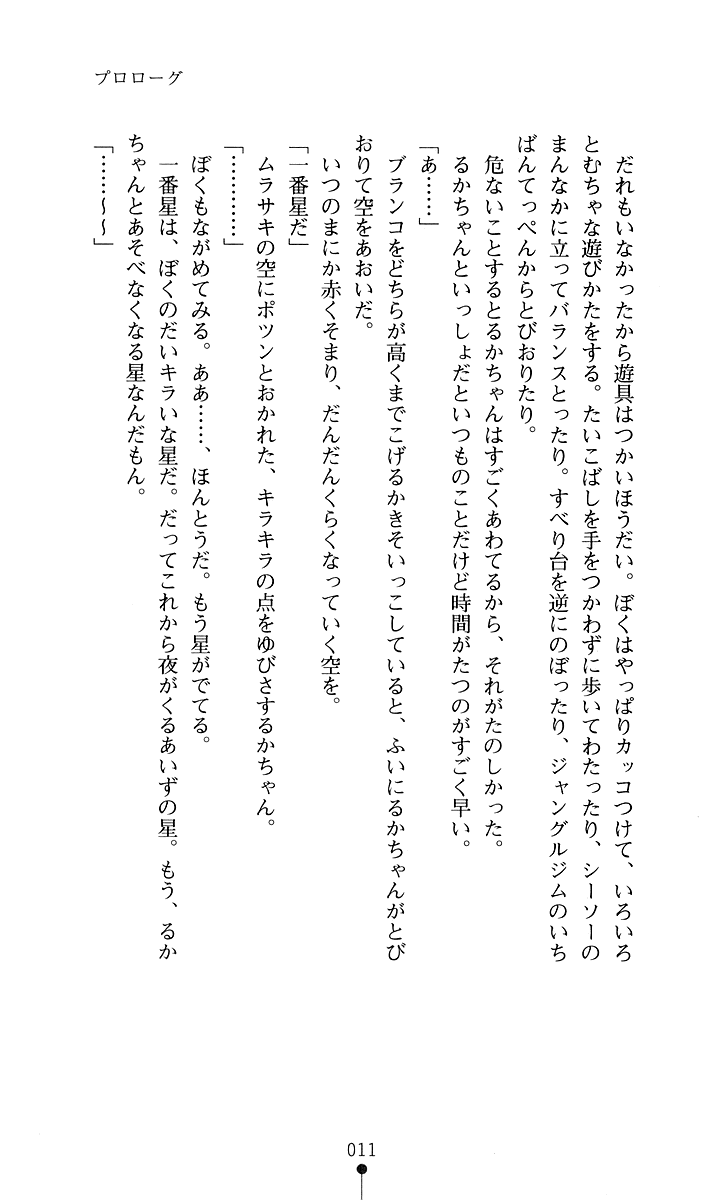 プロローグ
だれもいなかったから遊具はつかいほうだい。ぼくはやっぱりカッコつけて、いろいろ
とむちゃな遊びかたをする。たいこばしを手をつかわずに歩いてわたったり、シーソーの
まんなかに立ってバランスとったり。すべり台を逆にのぼったり、ジャングルジムのいち
ばんてっぺんからとびおりたり。
危ないことするとるかちゃんはすごくあわてるから、それがたのしかった。
るかちゃんといっしょだといつものことだけど時間がたつのがすごく早い。
「あ……」
ブランコをどちらが高くまでこげるかきそいっこしていると、ふいにるかちゃんがとび
おりて空をあおいだ。
いつのまにか赤くそまり、だんだんくらくなっていく空を。
「一番星だ」
ムラサキの空にポツンとおかれた、キラキラの点をゆびさするかちゃん。
「…………」
ぼくもながめてみる。ああ……、ほんとうだ。もう星がでてる。
一番星は、ぼくのだいキラいな星だ。だってこれから夜がくるあいずの星。もう、るか
ちゃんとあそべなくなる星なんだもん。
「……～～」
011